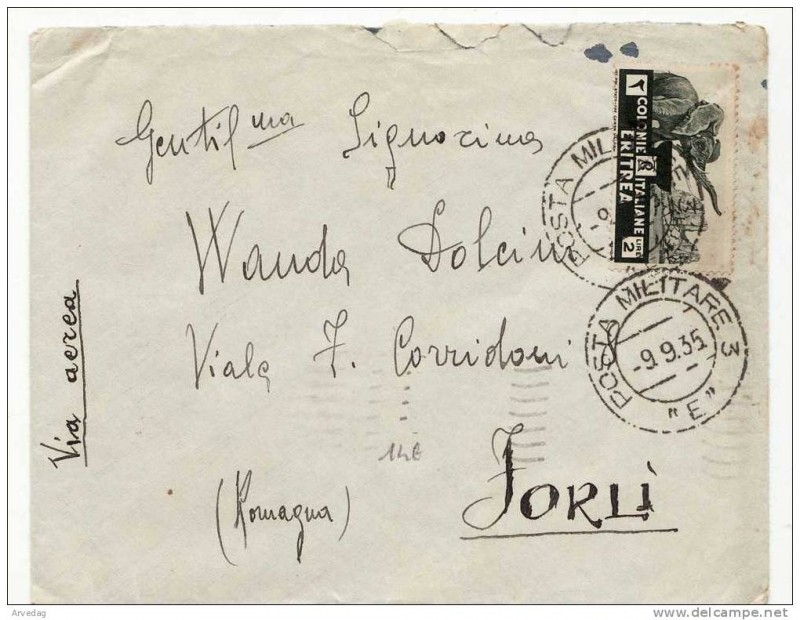 Gentil.ma Signorina
Wanda Dolcini
Viale F. Corridoni
(Romagna)
FORLÌ
Via aerea
COLONIE ITALIANE
ERITREA
LIRE 2
POSTA MILITARE 3
-9.9.35
"E"
POSTA MILI
-9
Arvedag
delcampe.net